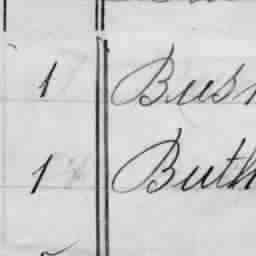 1 Busn
1 Buth